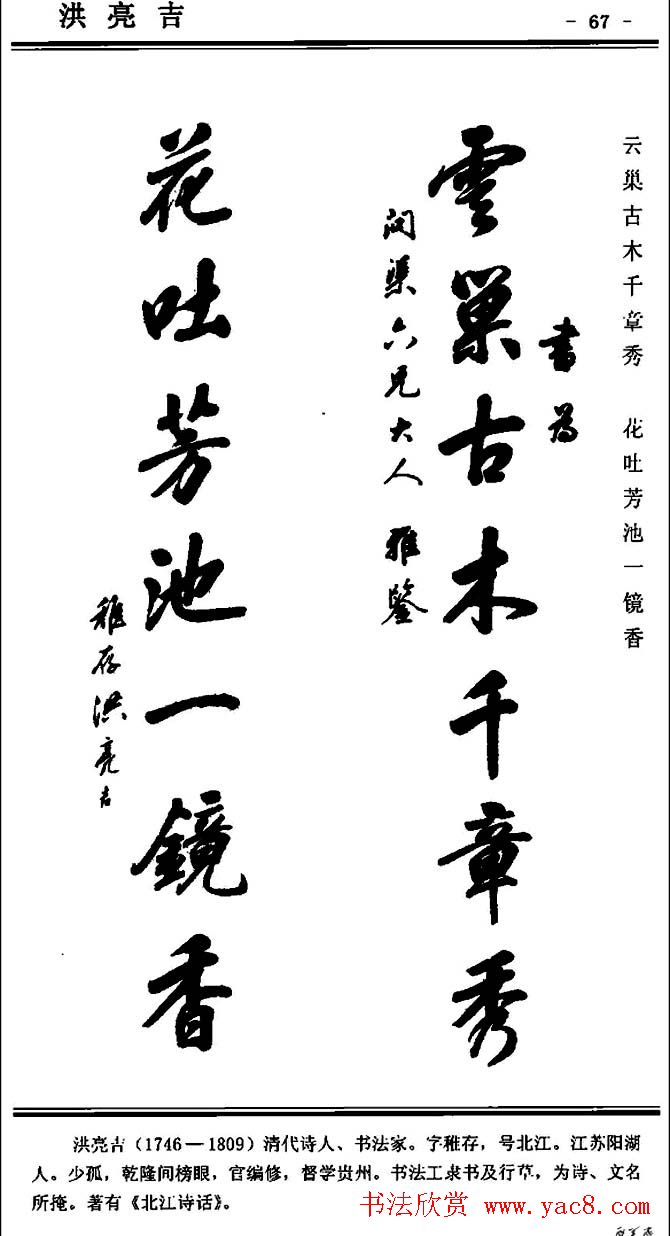 洪亮吉
- 67 -
云巢古木千章秀 花吐芳池一镜香
書为
雲巢古木千章秀
闰渠六兄大人 雅鑒
花吐芳池一鏡香
稚存洪亮吉
洪亮吉(1746—1809)清代诗人、书法家。字稚存,号北江。江苏阳湖
人。少孤,乾隆间榜眼,官编修,督学贵州。书法工隶书及行草,为诗、文名
所掩。著有《北江诗话》。
书法欣赏 www.yac8.com